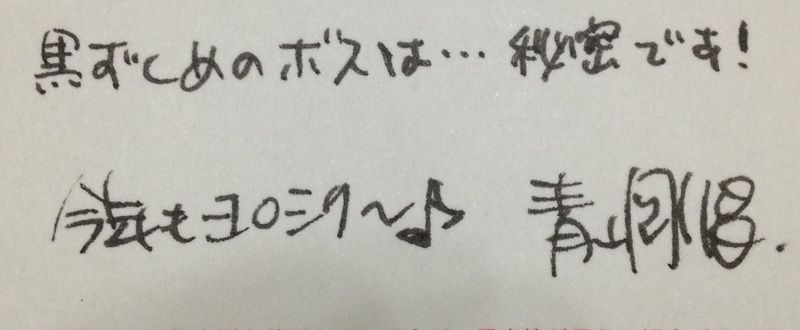 黒ずくめのボスは…秘密です!
今年もヨロシク〜♪ 青山剛昌.